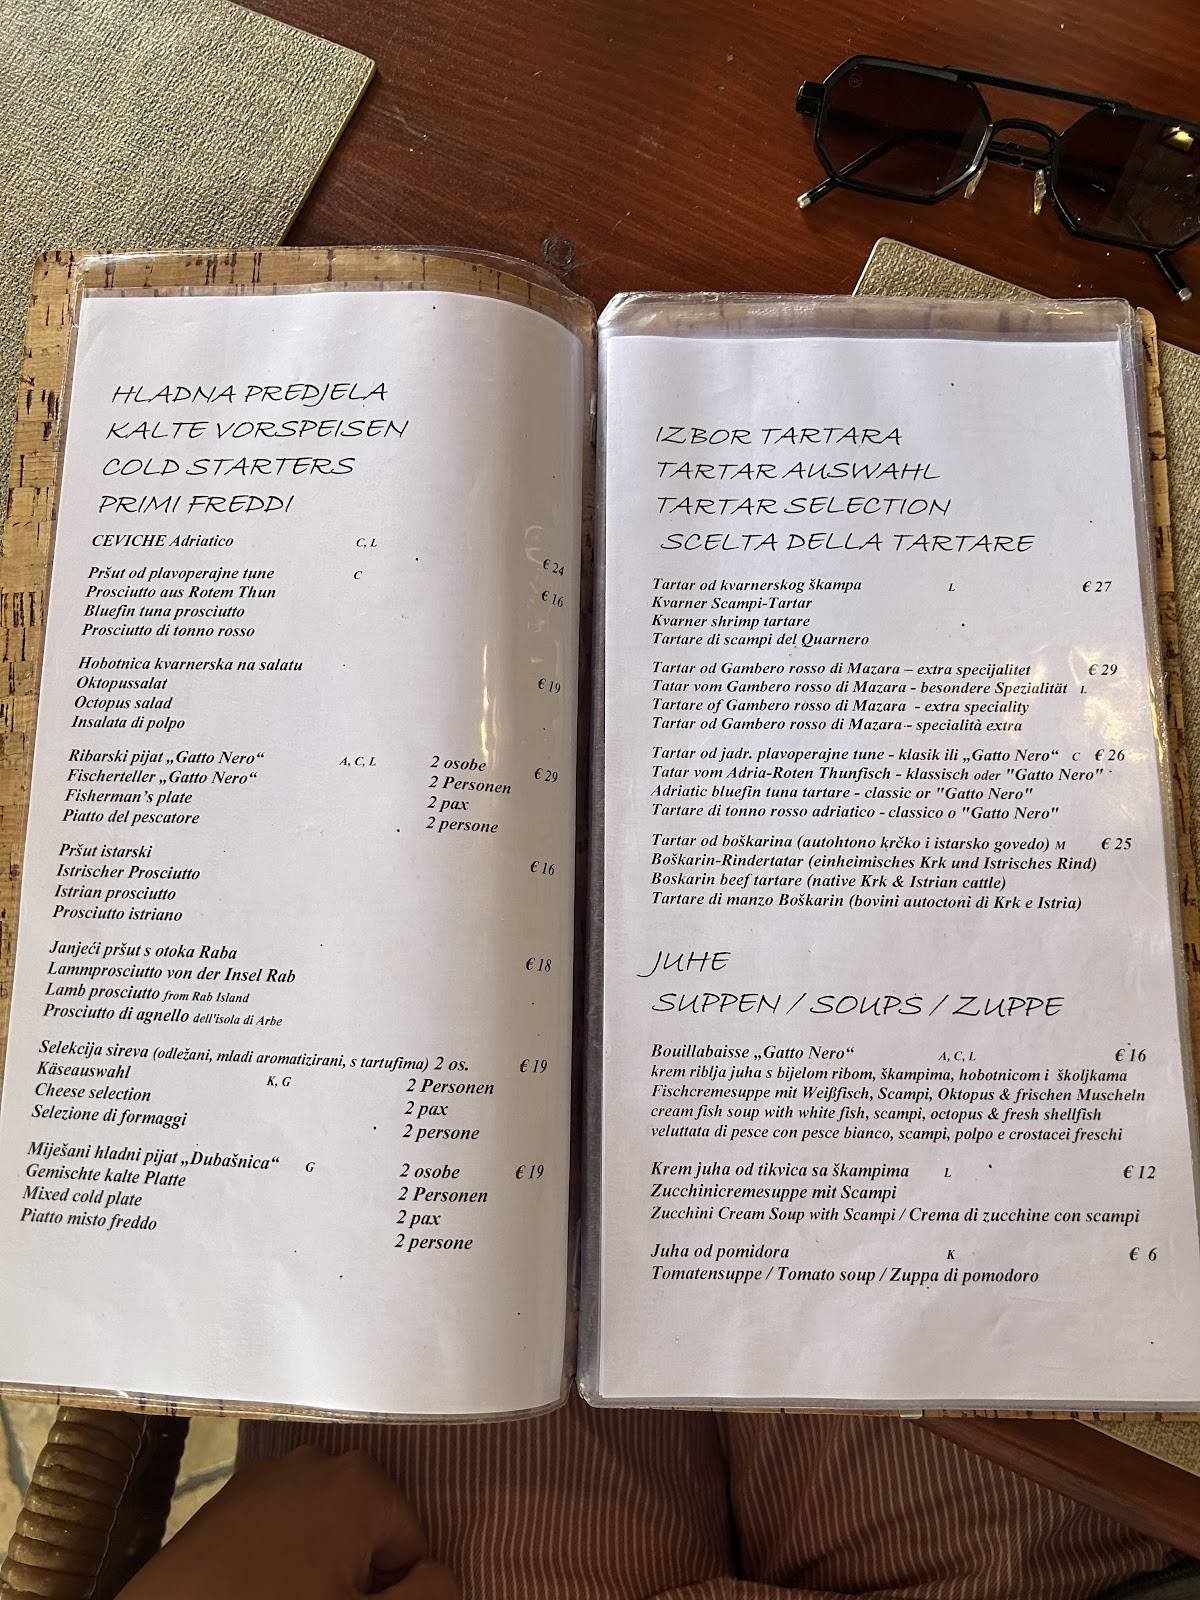 HLADNA PREDJELA
KALTE VORSPEISEN
COLD STARTERS
PRIMI FREDDI
CEVICHE Adriatico C, L € 24
Pršut od plavoperajne tune C € 16
Prosciutto aus Rotem Thun
Bluefin tuna prosciutto
Prosciutto di tonno rosso
Hobotnica kvarnerska na salatu
Oktopussalat € 19
Octopus salad
Insalata di polpo
Ribarski pijat „Gatto Nero“ A, C, L 2 osobe € 29
Fischerteller „Gatto Nero“ 2 Personen
Fisherman’s plate 2 pax
Piatto del pescatore 2 persone
Pršut istarski
Istrischer Prosciutto € 16
Istrian prosciutto
Prosciutto istriano
Janjeći pršut s otoka Raba
Lammprosciutto von der Insel Rab € 18
Lamb prosciutto from Rab Island
Prosciutto di agnello dell'isola di Arbe
Selekcija sireva (odležani, mladi aromatizirani, s tartufima) 2 os. € 19
Käseauswahl K, G 2 Personen
Cheese selection 2 pax
Selezione di formaggi 2 persone
Miješani hladni pijat „Dubašnica“ G 2 osobe € 19
Gemischte kalte Platte 2 Personen
Mixed cold plate 2 pax
Piatto misto freddo 2 persone
IZBOR TARTARA
TARTAR AUSWAHL
TARTAR SELECTION
SCELTA DELLA TARTARE
Tartar od kvarnerskog škampa L € 27
Kvarner Scampi-Tartar
Kvarner shrimp tartare
Tartare di scampi del Quarnero
Tartar od Gambero rosso di Mazara – extra specijalitet € 29
Tatar vom Gambero rosso di Mazara - besondere Spezialität L
Tartare of Gambero rosso di Mazara - extra speciality
Tartar od Gambero rosso di Mazara - specialità extra
Tartar od jadr. plavoperajne tune - klasik ili „Gatto Nero“ C € 26
Tatar vom Adria-Roten Thunfisch - klassisch oder "Gatto Nero"
Adriatic bluefin tuna tartare - classic or "Gatto Nero"
Tartare di tonno rosso adriatico - classico o "Gatto Nero"
Tartar od boškarina (autohtono krčko i istarsko govedo) M € 25
Boškarin-Rindertatar (einheimisches Krk und Istrisches Rind)
Boskarin beef tartare (native Krk & Istrian cattle)
Tartare di manzo Boškarin (bovini autoctoni di Krk e Istria)
JUHE
SUPPEN / SOUPS / ZUPPE
Bouillabaisse „Gatto Nero“ A, C, L € 16
krem riblja juha s bijelom ribom, škampima, hobotnicom i školjkama
Fischcremesuppe mit Weißfisch, Scampi, Oktopus & frischen Muscheln
cream fish soup with white fish, scampi, octopus & fresh shellfish
veluttata di pesce con pesce bianco, scampi, polpo e crostacei freschi
Krem juha od tikvica sa škampima L € 12
Zucchinicremesuppe mit Scampi
Zucchini Cream Soup with Scampi / Crema di zucchine con scampi
Juha od pomidora K € 6
Tomatensuppe / Tomato soup / Zuppa di pomodoro